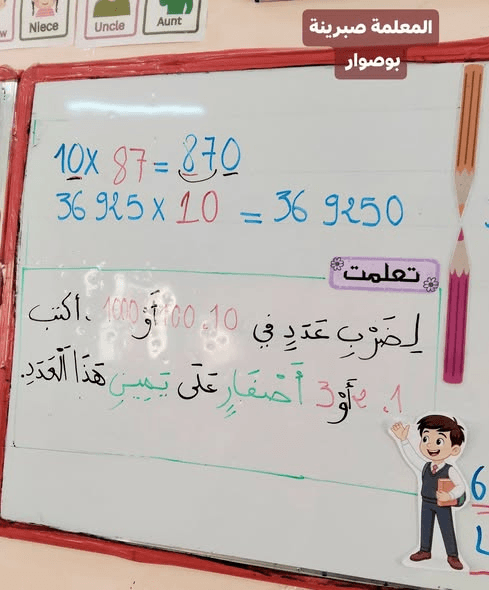 Niece
Uncle
Aunt
المعلمة صبرينة
بوصوار
10 x 87 = 870
36 925 x 10 = 36 9250
تعلمت
لِضَرْبِ عَدَدٍ في 10، 100 أَوْ 1000، أكتب
1، 2 أَوْ 3 أَصْفَارٍ عَلَى يَمِينِ هَذَا الْعَدَدِ.
6